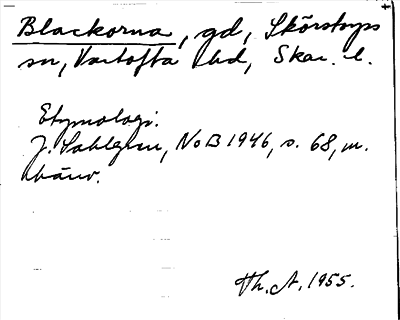 Blackorna, gd, Skörstorps
sn, Vartofta hd, Skar. l.
Etymologi.
J. Sahlgren, NoB 1946, s. 68, m.
hänv.
Th. A. 1955.